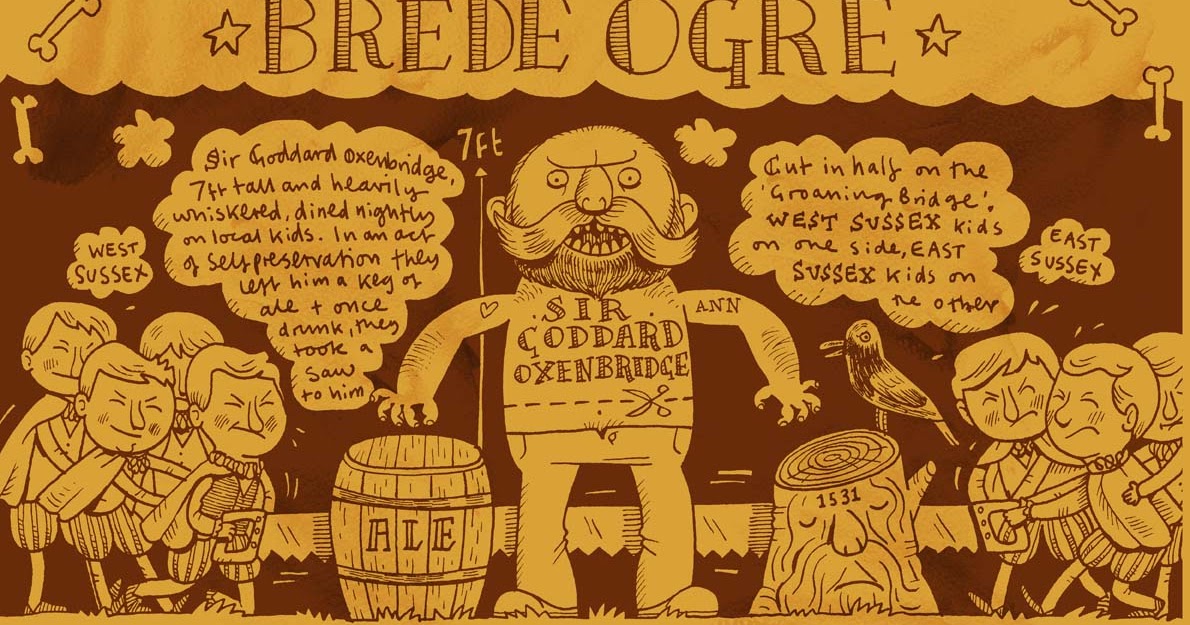 BREDE OGRE
7ft
Sir Goddard Oxenbridge,
7ft tall and heavily
whiskered, dined nightly
on local kids. In an act
of self preservation they
left him a keg of
ale + once
drunk, they
took a
saw
to him
WEST
SUSSEX
Cut in half on the
'Groaning Bridge'.
WEST SUSSEX kids
on one side, EAST
SUSSEX kids on
the other
EAST
SUSSEX
SIR
GODDARD
OXENBRIDGE
ANN
ALE
1531